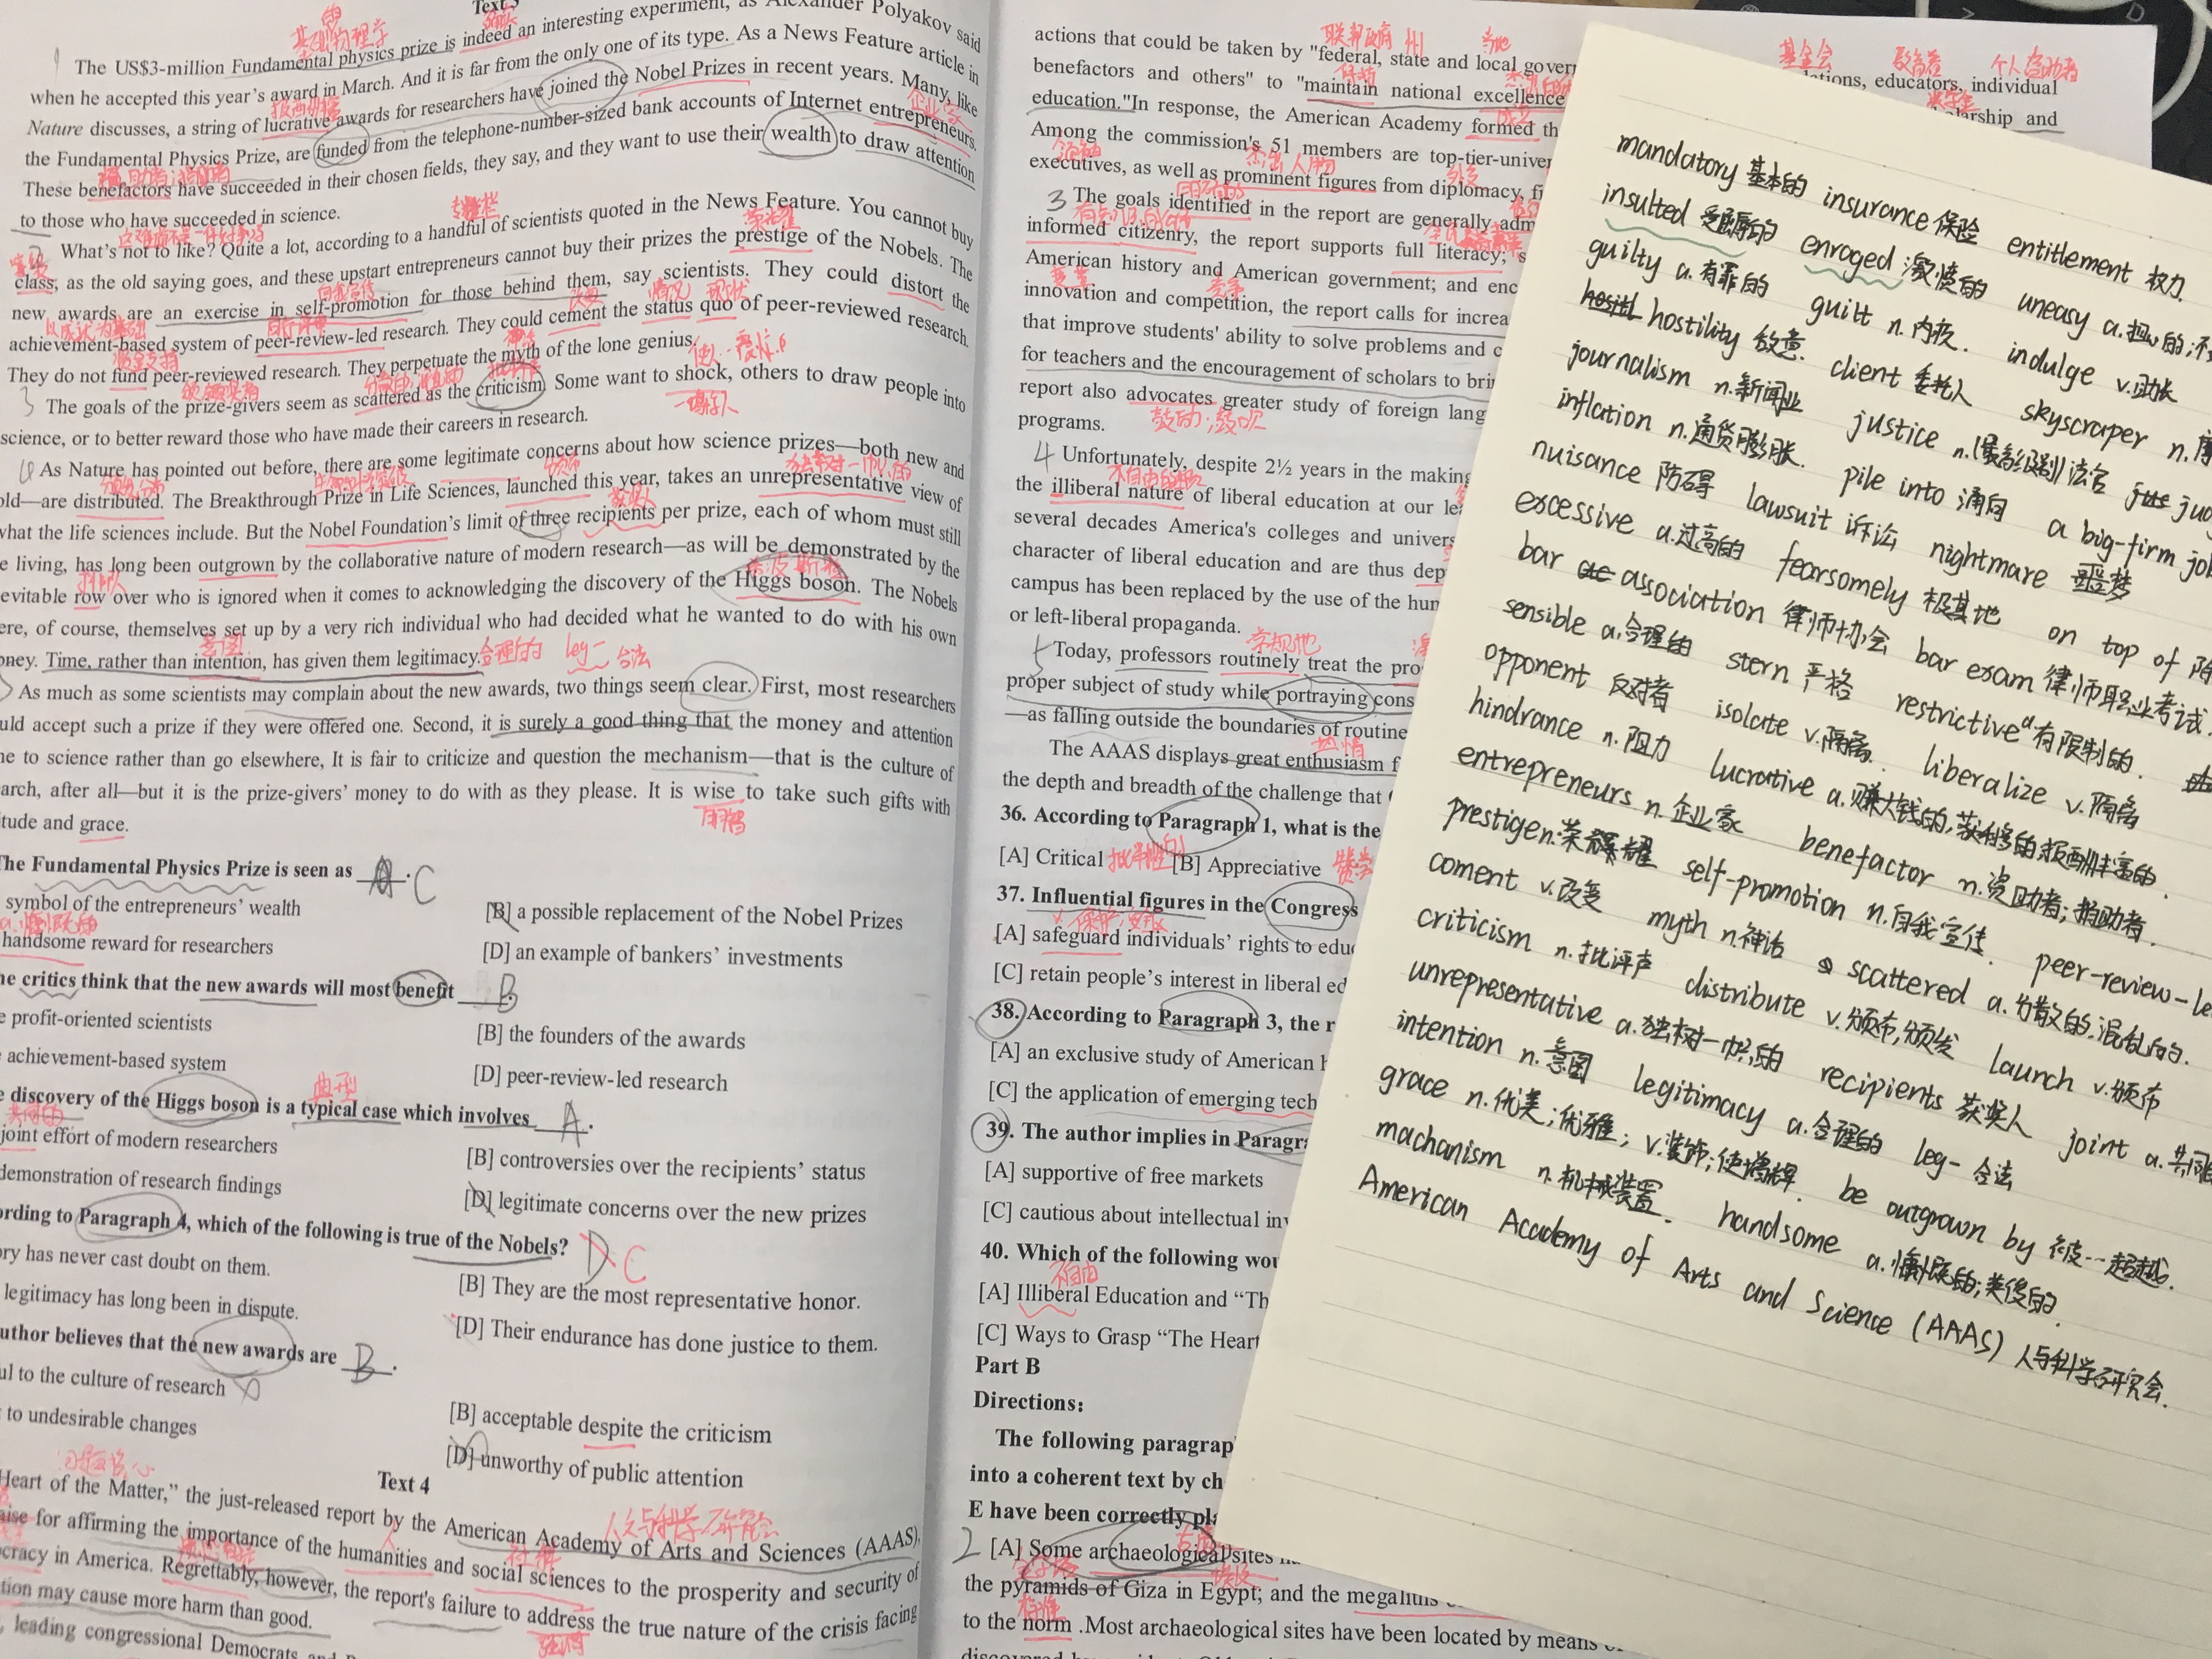 Text 3
The US$3-million Fundamental physics prize is indeed an interesting experiment, as Alexander Polyakov said
when he accepted this year's award in March. And it is far from the only one of its type. As a News Feature article in
Nature discusses, a string of lucrative awards for researchers have joined the Nobel Prizes in recent years. Many, like
the Fundamental Physics Prize, are funded from the telephone-number-sized bank accounts of Internet entrepreneurs.
These benefactors have succeeded in their chosen fields, they say, and they want to use their wealth to draw attention
to those who have succeeded in science.
What's not to like? Quite a lot, according to a handful of scientists quoted in the News Feature. You cannot buy
class, as the old saying goes, and these upstart entrepreneurs cannot buy their prizes the prestige of the Nobels. The
new awards are an exercise in self-promotion for those behind them, say scientists. They could distort the
achievement-based system of peer-review-led research. They could cement the status quo of peer-reviewed research.
They do not fund peer-reviewed research. They perpetuate the myth of the lone genius.
3 The goals of the prize-givers seem as scattered as the criticism. Some want to shock, others to draw people into
science, or to better reward those who have made their careers in research.
4 As Nature has pointed out before, there are some legitimate concerns about how science prizes—both new and
old—are distributed. The Breakthrough Prize in Life Sciences, launched this year, takes an unrepresentative view of
what the life sciences include. But the Nobel Foundation's limit of three recipients per prize, each of whom must still
e living, has long been outgrown by the collaborative nature of modern research—as will be demonstrated by the
evitable row over who is ignored when it comes to acknowledging the discovery of the Higgs boson. The Nobels
ere, of course, themselves set up by a very rich individual who had decided what he wanted to do with his own
oney. Time, rather than intention, has given them legitimacy. 合理的 leg- 合法
As much as some scientists may complain about the new awards, two things seem clear. First, most researchers
uld accept such a prize if they were offered one. Second, it is surely a good thing that the money and attention
ne to science rather than go elsewhere, It is fair to criticize and question the mechanism—that is the culture of
arch, after all—but it is the prize-givers' money to do with as they please. It is wise to take such gifts with
itude and grace.
明智
The Fundamental Physics Prize is seen as A C
symbol of the entrepreneurs' wealth
[B] a possible replacement of the Nobel Prizes
handsome reward for researchers
[D] an example of bankers' investments
he critics think that the new awards will most benefit B.
e profit-oriented scientists
[B] the founders of the awards
achievement-based system
[D] peer-review-led research
典型
e discovery of the Higgs boson is a typical case which involves A.
共同的
joint effort of modern researchers
[B] controversies over the recipients' status
demonstration of research findings
[D] legitimate concerns over the new prizes
ording to Paragraph 4, which of the following is true of the Nobels? D C
ory has never cast doubt on them.
[B] They are the most representative honor.
legitimacy has long been in dispute.
[D] Their endurance has done justice to them.
uthor believes that the new awards are B.
ul to the culture of research
[B] acceptable despite the criticism
to undesirable changes
[D] unworthy of public attention
Text 4
Heart of the Matter," the just-released report by the American Academy of Arts and Sciences (AAAS),
aise for affirming the importance of the humanities and social sciences to the prosperity and security of
ocracy in America. Regrettably, however, the report's failure to address the true nature of the crisis facing
tion may cause more harm than good.
强调
, leading congressional Democrats and
联邦政府 州 当地
actions that could be taken by "federal, state and local gover
benefactors and others" to "maintain national excellence
education."In response, the American Academy formed th
Among the commission's 51 members are top-tier-univer
executives, as well as prominent figures from diplomacy, fi
3 The goals identified in the report are generally adm
informed citizenry, the report supports full literacy; s
American history and American government; and enc
innovation and competition, the report calls for increa
that improve students' ability to solve problems and c
for teachers and the encouragement of scholars to brin
report also advocates greater study of foreign lang
programs. 鼓动;鼓吹
4 Unfortunately, despite 2½ years in the making
the illiberal nature of liberal education at our le
several decades America's colleges and univers
character of liberal education and are thus dep
campus has been replaced by the use of the hun
or left-liberal propaganda. 常规地
Today, professors routinely treat the pro
proper subject of study while portraying cons
—as falling outside the boundaries of routine
热情
The AAAS displays great enthusiasm f
the depth and breadth of the challenge that
36. According to Paragraph 1, what is the
[A] Critical 批评性的 [B] Appreciative 赞赏
37. Influential figures in the Congress
[A] safeguard individuals' rights to educ
[C] retain people's interest in liberal ed
38. According to Paragraph 3, the r
[A] an exclusive study of American h
[C] the application of emerging tech
39. The author implies in Paragra
[A] supportive of free markets
[C] cautious about intellectual inv
40. Which of the following wou
不自由
[A] Illiberal Education and "Th
[C] Ways to Grasp "The Heart
Part B
Directions:
The following paragrap
into a coherent text by ch
E have been correctly pla
2 [A] Some archaeological sites
the pyramids of Giza in Egypt; and the megaliths
to the norm .Most archaeological sites have been located by means
基金会 教育者 个人资助者
ations, educators, individual
larship and
mandatory 基本的 insurance 保险 entitlement 权力
insulted 受侮辱的 enroged 激愤的 uneasy a.担心的;不
guilty a.有罪的 guilt n.内疚. indulge v.助长
hostility 敌意. client 委托人 skyscraper n.
journalism n.新闻业 justice n.(最高级别)法官 jud
inflation n.通货膨胀. pile into 涌向 a big-firm job
nuisance 防碍 lawsuit 诉讼 nightmare 噩梦
excessive a.过高的 fearsomely 极其地 on top of 除
bar association 律师协会 bar exam 律师职业考试.
sensible a.合理的 stern 严格 restrictive a有限制的.
opponent 反对者 isolate v.隔离. liberalize v.隔离
hindrance n.阻力 lucrative a.赚大钱的,获利多的,报酬丰富的.
entrepreneurs n.企业家 benefactor n.资助者;捐助者.
prestige n.荣辉耀 self-promotion n.自我宣传. peer-review-le
coment v.改变 myth n.神话 scattered a.分散的;混乱的.
criticism n.批评声 distribute v.颁布,颁发 launch v.颁布
unrepresentative a.独树一帜的 recipients 获奖人 joint a.共同
intention n.意图 legitimacy a.合理的 leg- 合法
grace n.优美;优雅; v.装饰;使增辉. be outgrown by 被…超越.
machanism n.机械装置. handsome a.慷慨的;英俊的.
American Academy of Arts and Science (AAAS) 人与科学研究会.